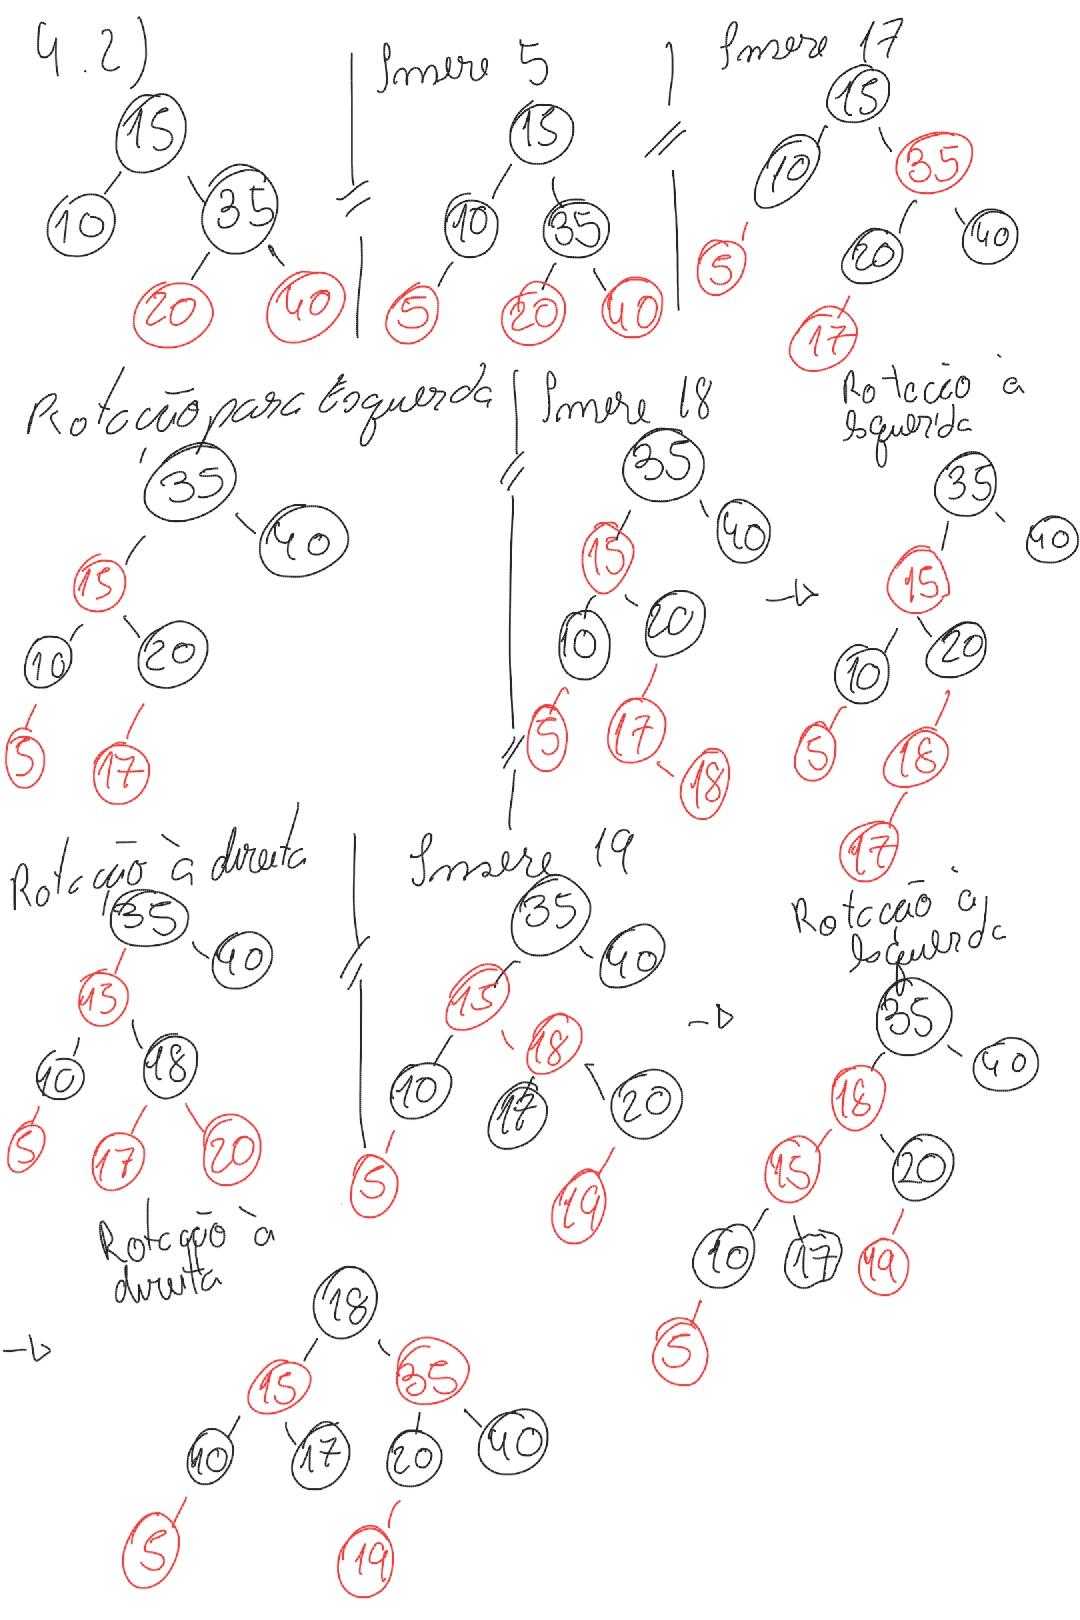 4.2)
Insere 5
Insere 17
15
10 35
20 40
15
10 35
5 20 40
15
10 35
5 20 40
17
Rotação para Esquerda
35
40
15
10 20
5 17
Insere 18
35
15 40
10 20
5 17
18
Rotação à
Esquerda
35
40
15
10 20
5 18
17
Rotação à direita
35
40
15
10 18
5 17 20
Insere 19
35
40
15
18
10 17 20
5 19
Rotação à
Esquerda
35
40
18
15 20
10 17 19
5
Rotação à
direita
18
15 35
10 17 20 40
5 19